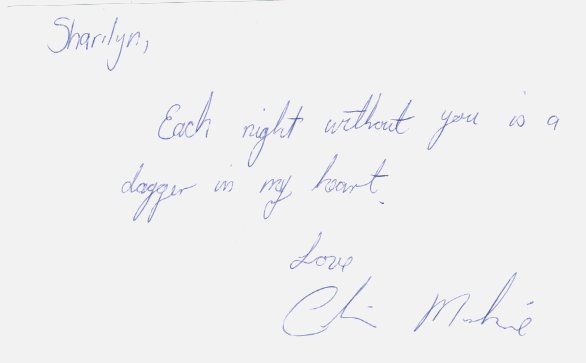 Sharilyn,
Each night without you is a
dagger in my heart.
Love